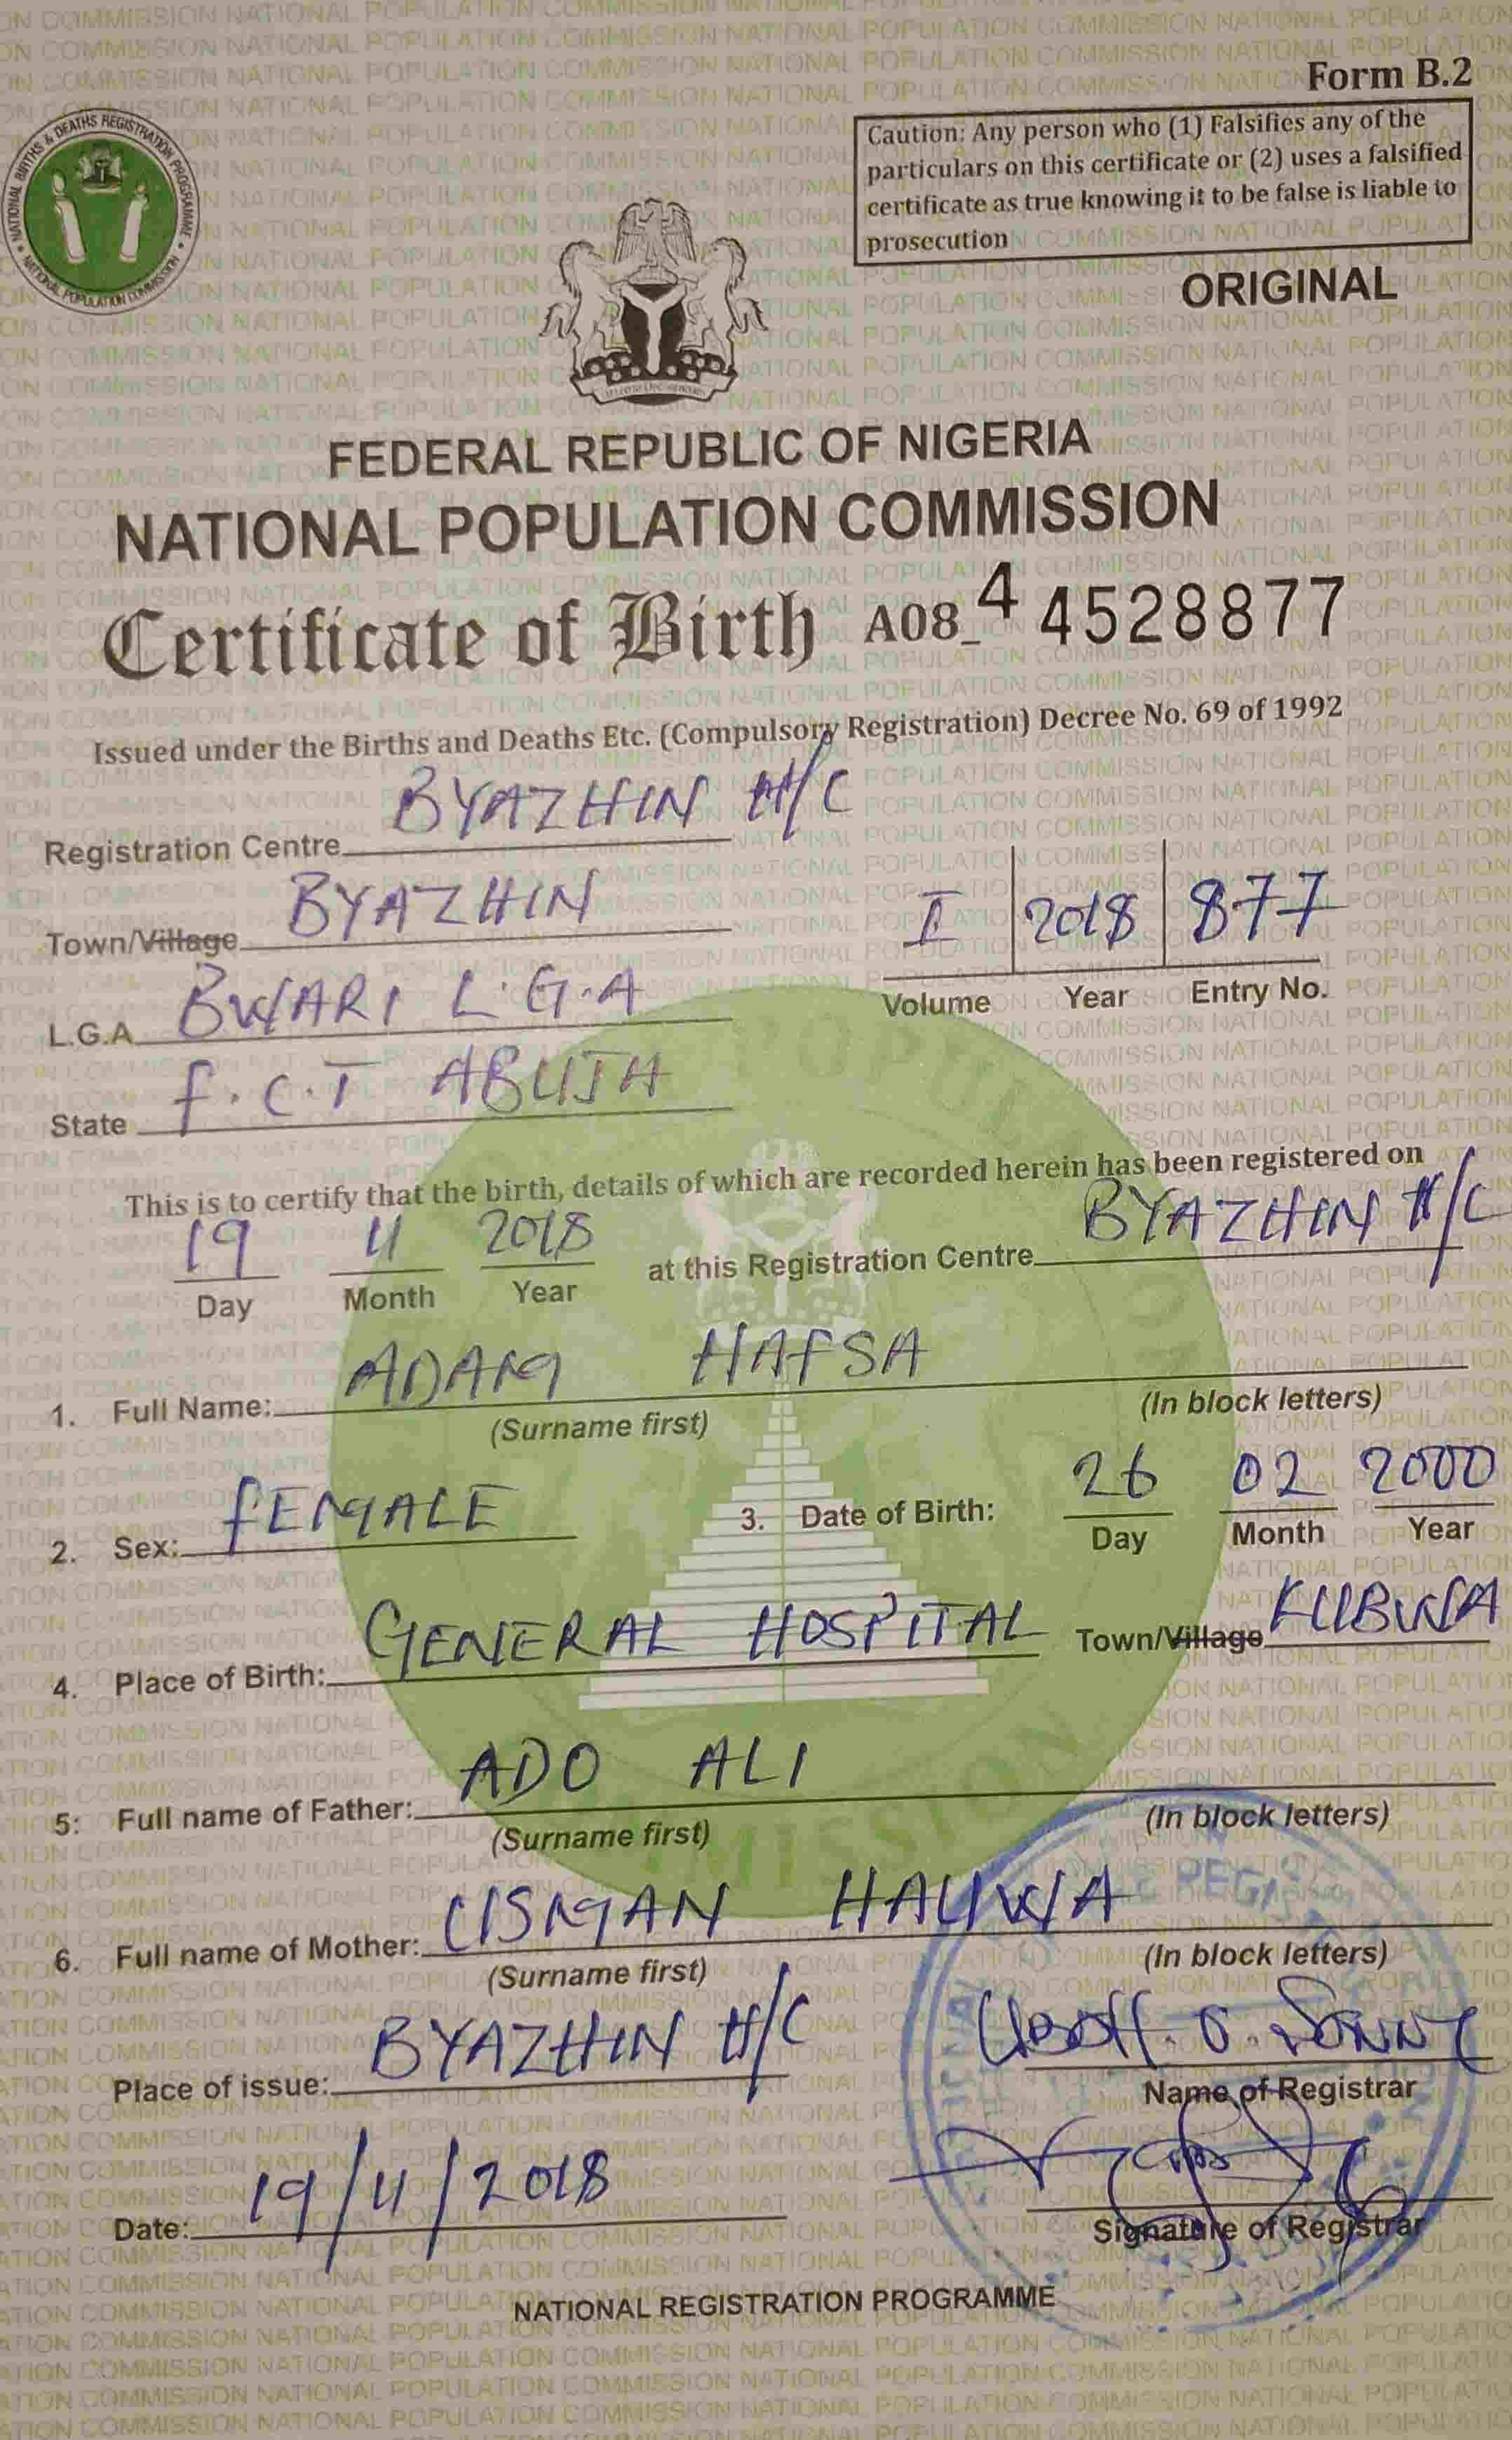 Form B.2
NATIONAL BIRTHS & DEATHS REGISTRATION PROGRAMME
NATIONAL POPULATION COMMISSION
Caution: Any person who (1) Falsifies any of the
particulars on this certificate or (2) uses a falsified
certificate as true knowing it to be false is liable to
prosecution
ORIGINAL
FEDERAL REPUBLIC OF NIGERIA
NATIONAL POPULATION COMMISSION
Certificate of Birth A08_4 4528877
Issued under the Births and Deaths Etc. (Compulsory Registration) Decree No. 69 of 1992
Registration Centre BYAZHIN H/C
Town/Village BYAZHIN
I 2018 877
Volume Year Entry No.
L.G.A BWARI L.G.A
State F.C.T ABUJA
This is to certify that the birth, details of which are recorded herein has been registered on
19 11 2018 at this Registration Centre BYAZHIN H/C
Day Month Year
1. Full Name: ADAM HAFSA
(Surname first) (In block letters)
2. Sex: FEMALE 3. Date of Birth: 26 02 2000
Day Month Year
4. Place of Birth: GENERAL HOSPITAL Town/Village KUBWA
5: Full name of Father: ADO ALI
(Surname first) (In block letters)
6. Full name of Mother: USMAN HAUWA
(Surname first) (In block letters)
Place of issue: BYAZHIN H/C
Name of Registrar
Date: 19/11/2018
Signature of Registrar
NATIONAL REGISTRATION PROGRAMME